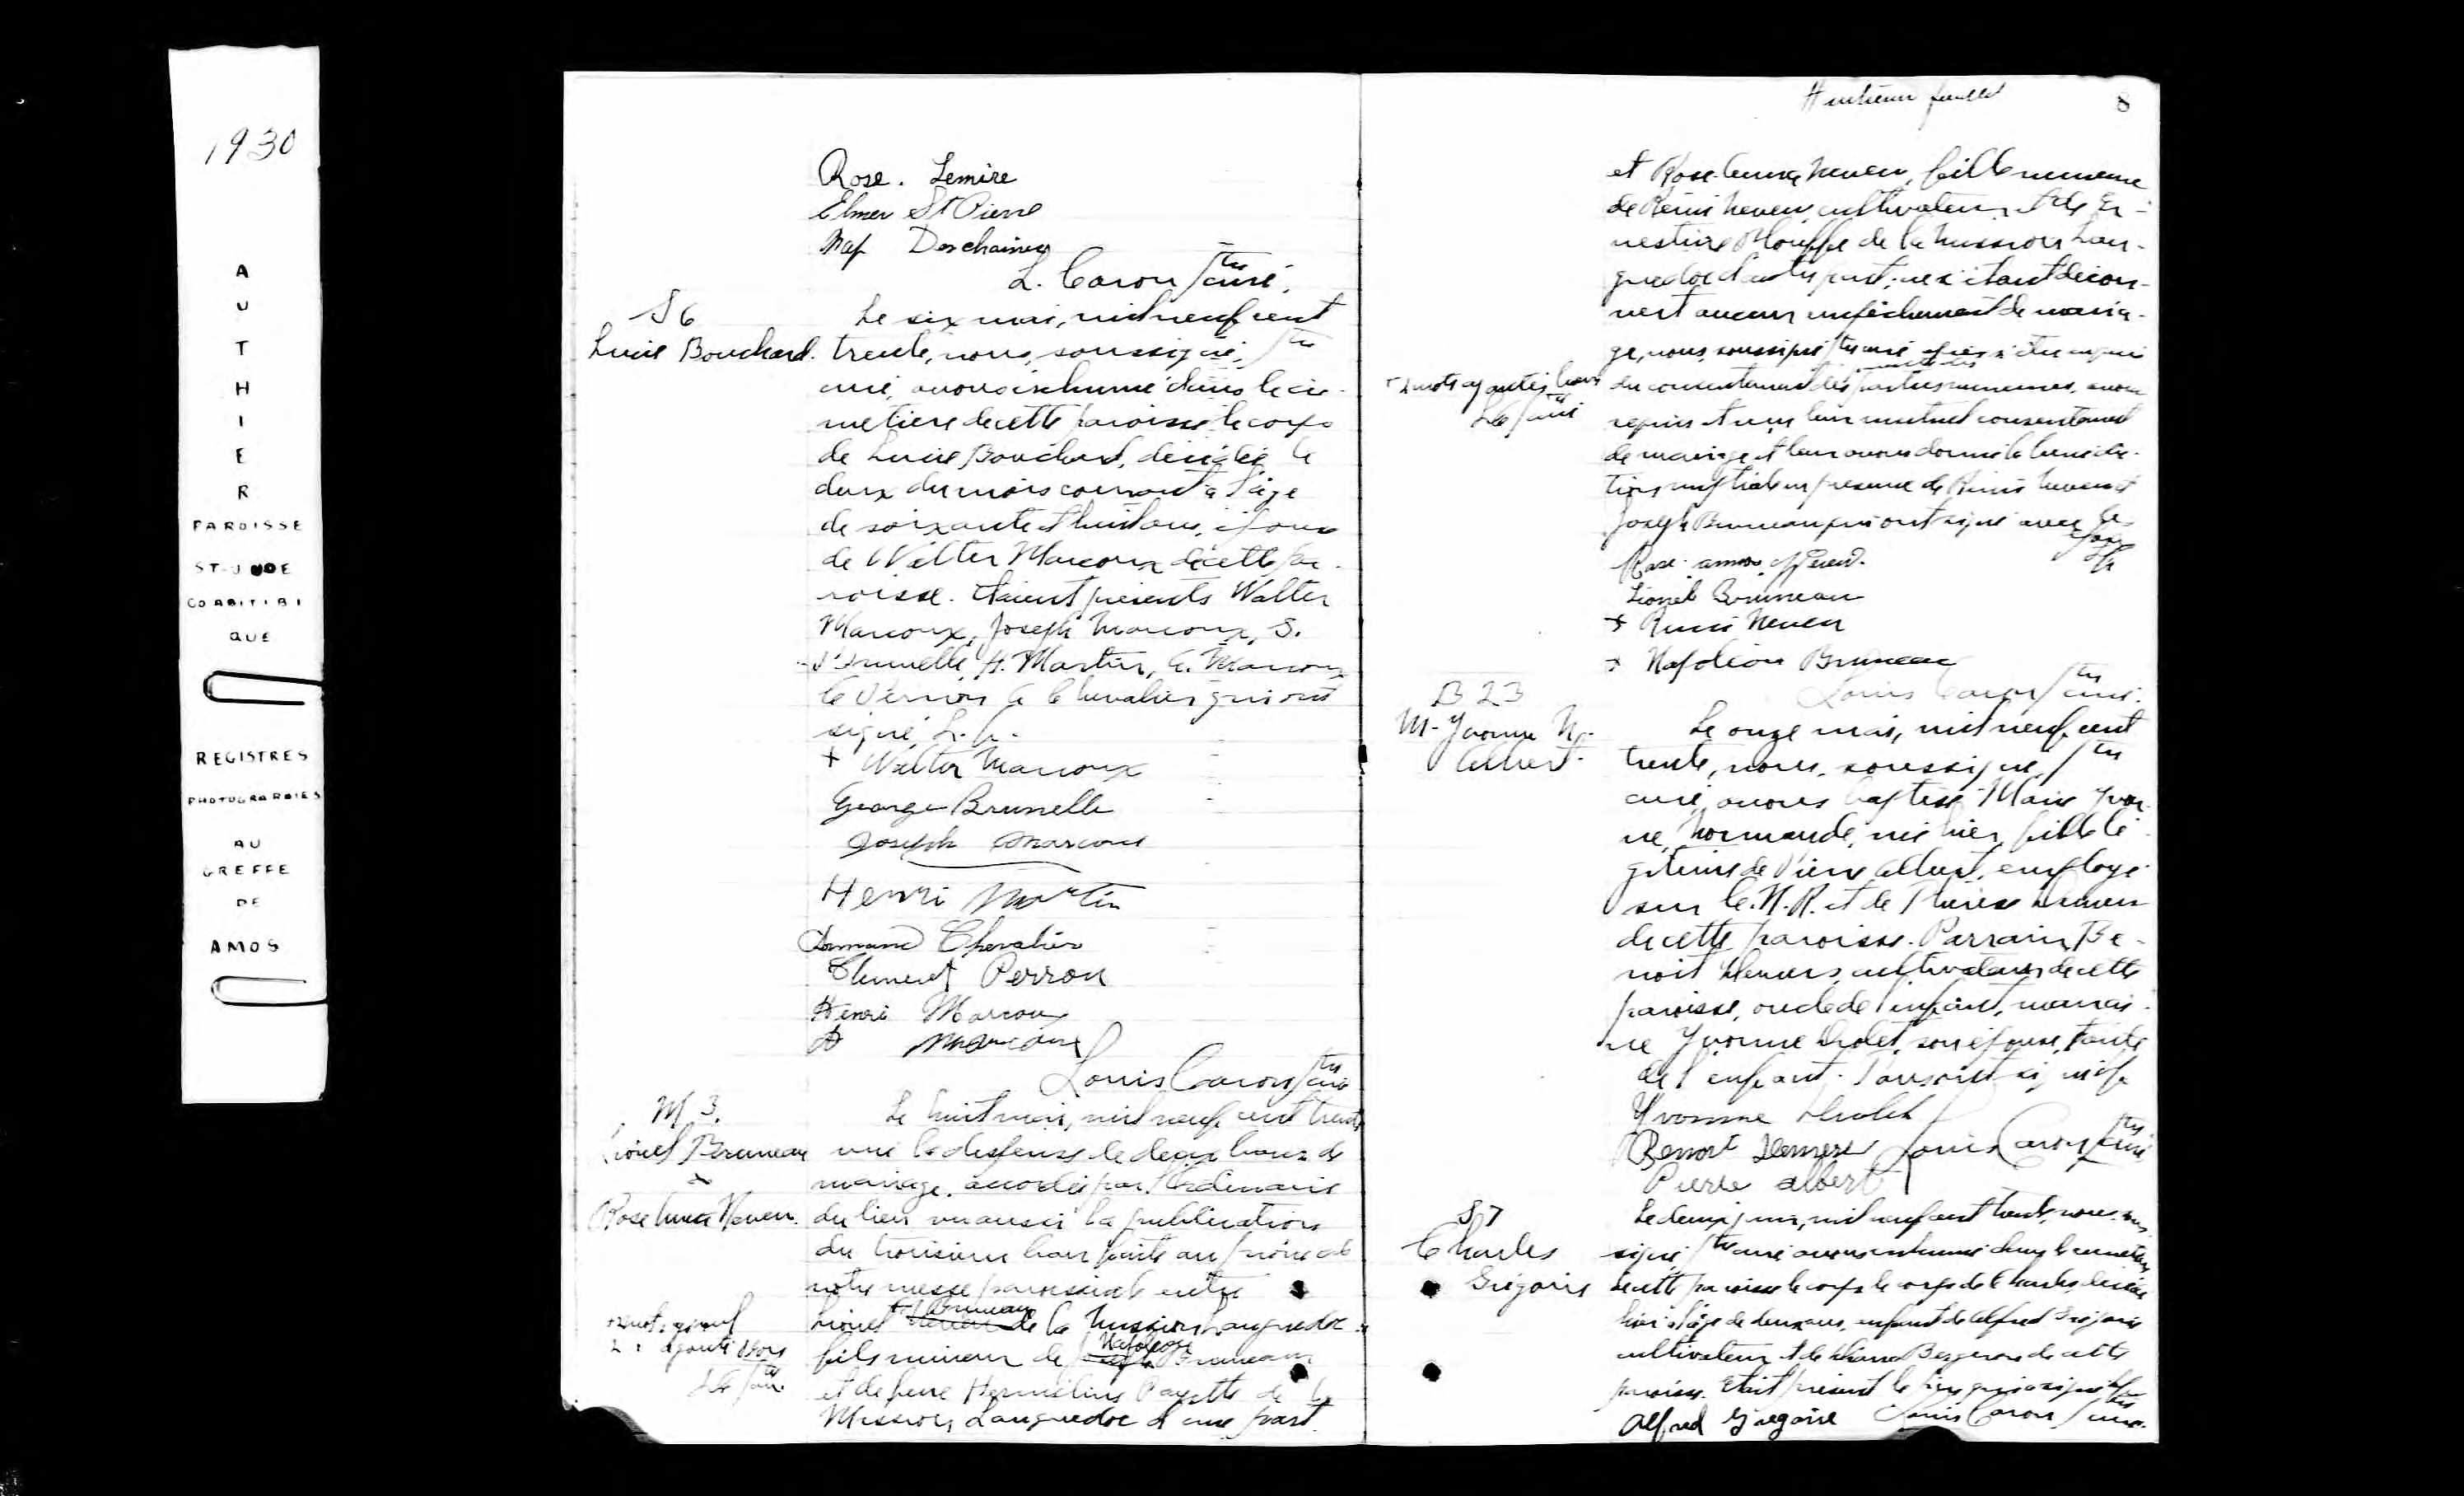 1930
AUTHIER
PAROISSE
ST-JUDE
CO ABITIBI
QUE
REGISTRES
PHOTOGRAPHIES
AU
GREFFE
DE
AMOS
Rose. Lemire
Elmer St Pierre
Nap Deschaines
L. Caron ptre curé.
S 6
Lucie Bouchard.
Le six mai, mil neuf cent
trente, nous, soussigné, ptre
curé, avons inhumé dans le ci-
metière de cette paroisse le corps
de Lucie Bouchard, décédée le
deux du mois courant à l'âge
de soixante et huit ans, épouse
de Walter Marcoux de cette pa-
roisse. Etaient présents Walter
Marcoux, Joseph Marcoux, S.
Brunelle, H. Martin, A. Marcoux
C. Perron A Chevalier qui ont
signé L.f.
+ Walter Marcoux
George Brunelle
Joseph Marcoux
Henri Martin
Armand Chevalier
Clément Perron
Henri Marcoux
A Marcoux
Louis Caron ptre curé
M 3.
Lionel Bruneau
&
Rose Neveu.
Le huit mai, mil neuf cent trente
vu la dispense de deux bans de
mariage accordée par l'Ordinaire
du lieu vu aussi la publication
du troisième ban faite au prône de
notre messe paroissiale entre
Lionel Bruneau de la Mission Languedoc
fils mineur de Napoléon Bruneau
et de feue Herméline Payette de la
Mission Languedoc d'une part
Huitième feuillet
8
et Rose Neveu, fille mineure
de Rémi Neveu, cultivateur et de Er-
nestine Plouffe de la Mission Lan-
guedoc d'autre part; ne s'étant décou-
vert aucun empêchement de maria-
ge, nous, soussigné ptre curé après s'être enquis
du consentement des parties mineures, avons
requis et reçu leur mutuel consentement
de mariage et leur avons donné la bénédic-
tion nuptiale en présence de Rémi Neveu et
Joseph Bruneau qui ont signé avec les
époux
Rose
Lionel Bruneau
+ Rémi Neveu
+ Napoléon Bruneau
Louis Caron ptre curé.
B 23
M-Yvonne N.
Albert
Le onze mai, mil neuf cent
trente, nous, soussigné, ptre
curé, avons baptisé Marie Yvon-
ne, Normande, née hier, fille lé-
gitime de Pierre Albert, employé
sur le C.N.R. et de Thérèse Demers
de cette paroisse. Parrain Be-
noit Demers, cultivateur de cette
paroisse, oncle de l'enfant, marrai-
ne Yvonne Drolet, son épouse, tante
de l'enfant. Tous ont signé L.f.
Yvonne Drolet
Benoit Demers Louis Caron ptre curé
Pierre Albert
S 7
Charles
Grégoire
Le deux juin, mil neuf cent trente, nous, sous
signé, ptre curé avons inhumé dans le cimetière
de cette paroisse le corps le corps de Charles, décédé
hier à l'âge de deux ans, enfant de Alfred Grégoire
cultivateur et de Bergeron de cette
paroisse. Etait présent le père qui a signé L.f.
Alfred Grégoire Louis Caron ptre curé.